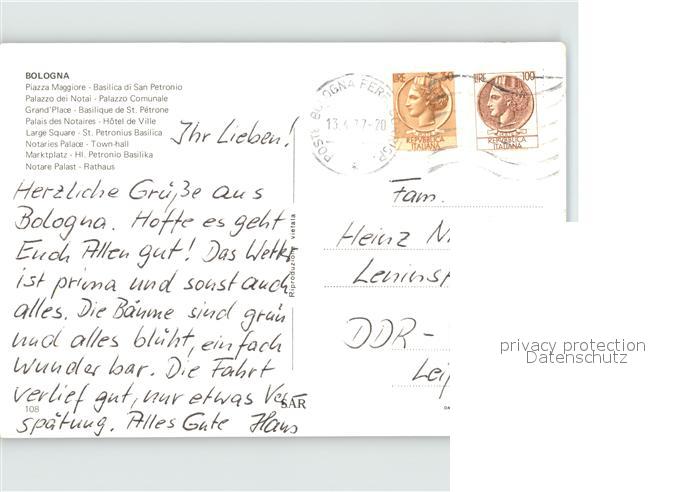 BOLOGNA
Piazza Maggiore - Basilica di San Petronio
Palazzo dei Notai - Palazzo Comunale
Grand'Place - Basilique de St. Pétrone
Palais des Notaires - Hôtel de Ville
Large Square - St. Petronius Basilica
Notaries Palace - Town-hall
Marktplatz - Hl. Petronio Basilika
Notare Palast - Rathaus
Ihr Lieben!
Herzliche Grüße aus
Bologna. Hoffe es geht
Euch Allen gut! Das Wetter
ist prima und sonst auch
alles. Die Bäume sind grün
und alles blüht, einfach
wunderbar. Die Fahrt
verlief gut, nur etwas Ver-
spätung. Alles Gute Hans
108
SAR
Riproduzione vietata
POSTE BOLOGNA FERR.
LIRE 50
REPVBBLICA
ITALIANA
LIRE 100
REPVBBLICA
ITALIANA
Fam.
Heinz
Leninst
DDR-
Leip
privacy protection
Datenschutz